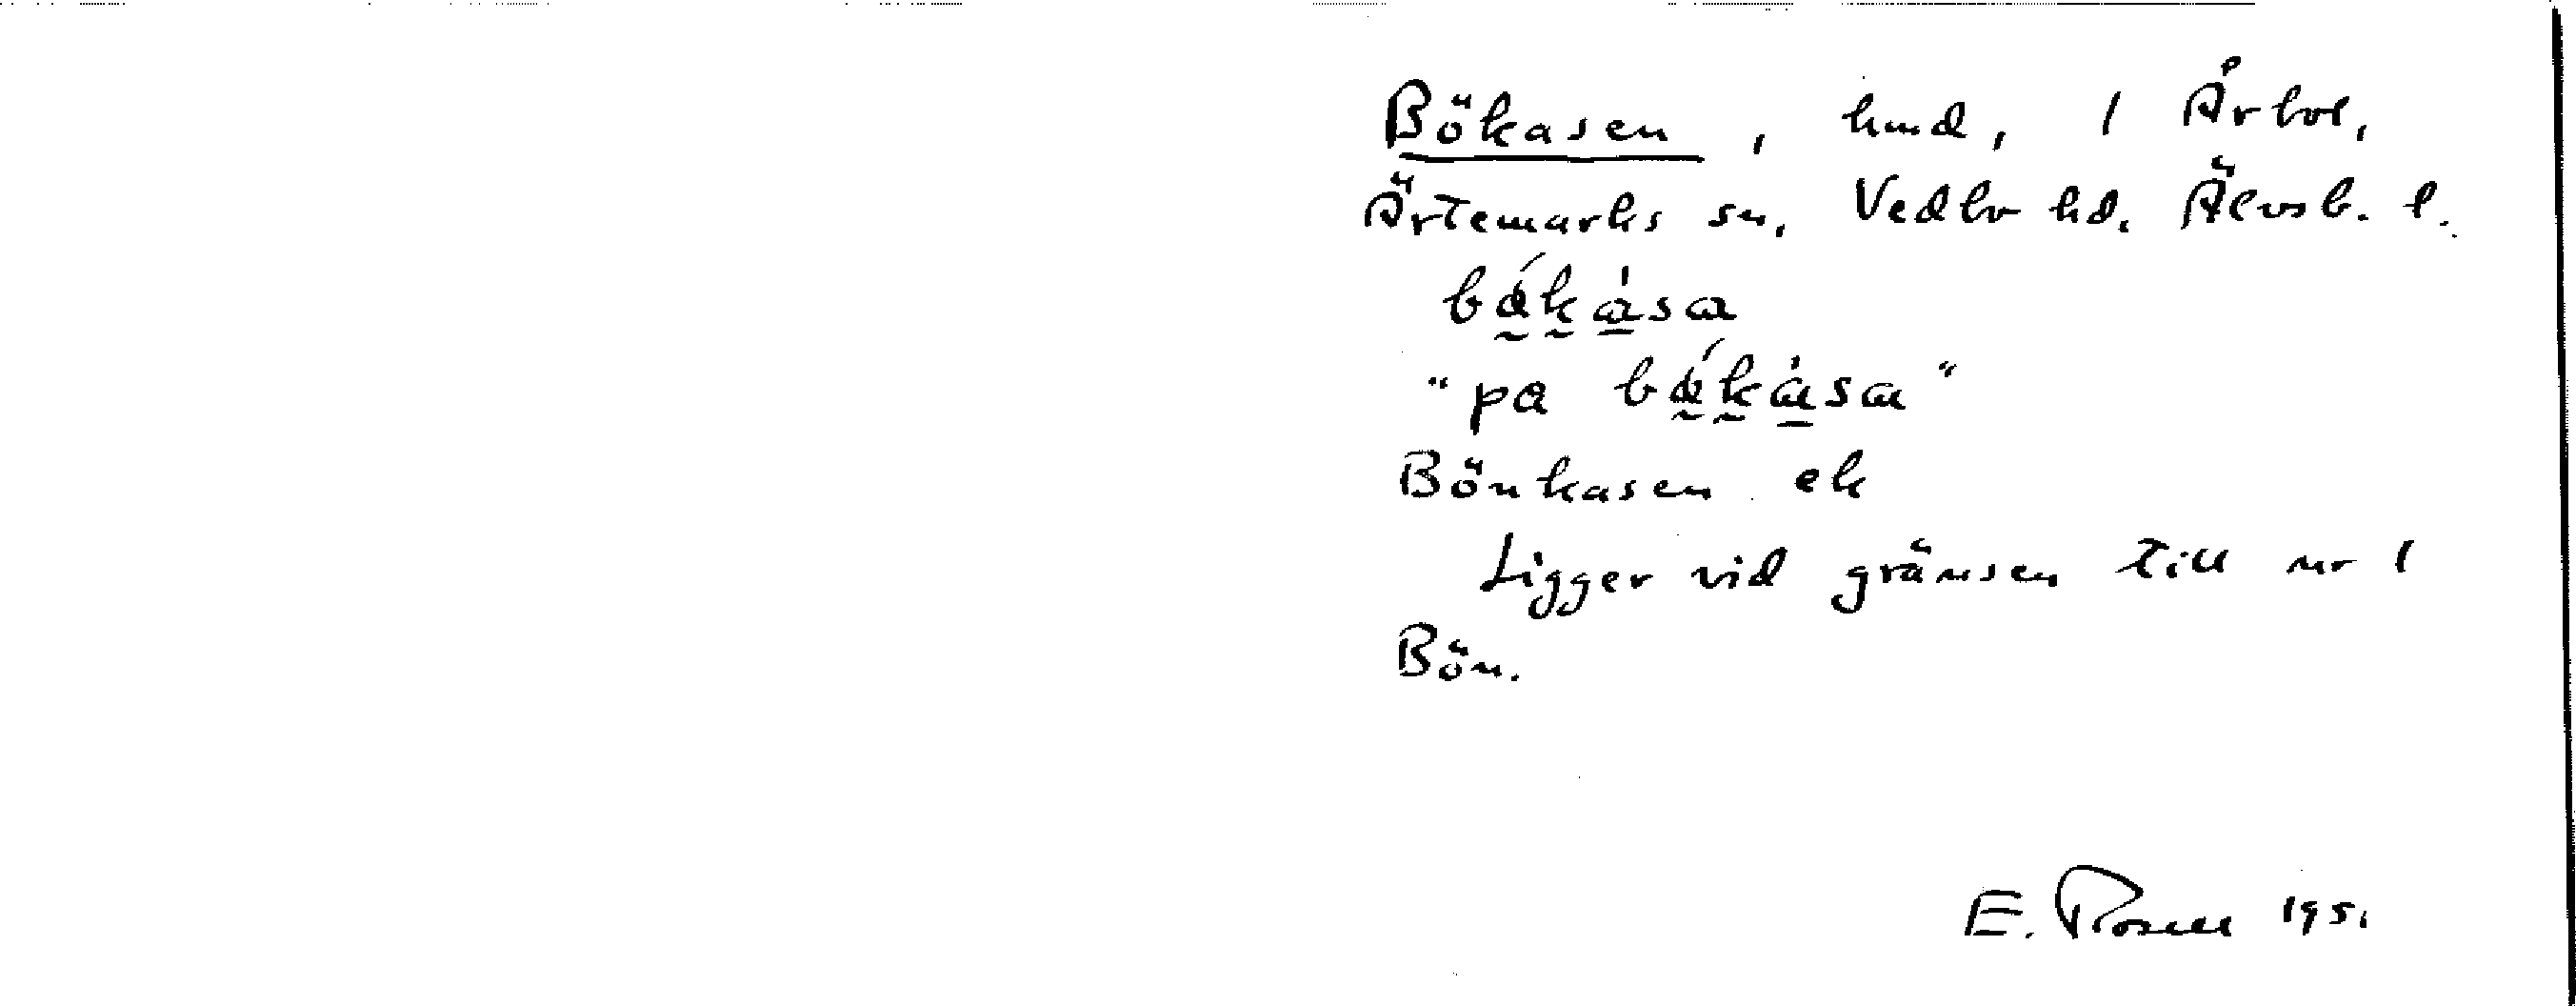 Bökasen, hmd, 1 Årbol,
Ärtemarks sn, Vedbo hd. Älvsb. l.
bǿkása
"pa bǿkása"
Bönkasen ek
Ligger vid gränsen till nr 1
Bön.
E. Rosell 1951